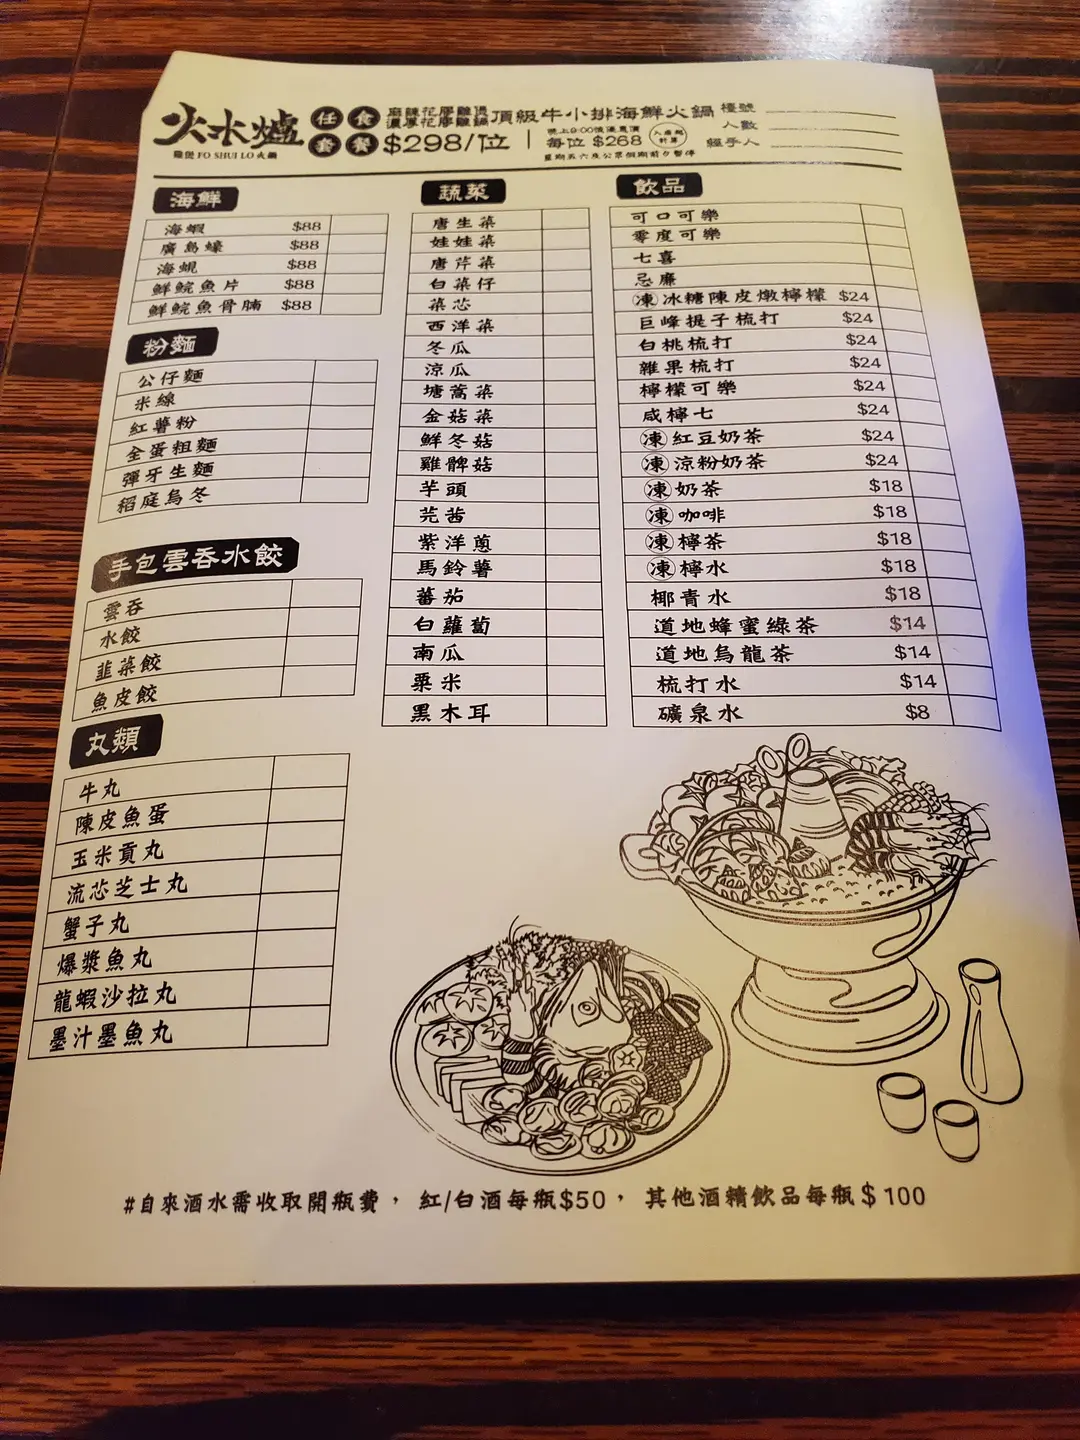 火水爐
雞煲 FO SHUI LO 火鍋
任食套餐
麻辣花膠雞煲
濃厚花膠雞鍋
頂級牛小排海鮮火鍋
$298/位
晚上9:00後優惠價
每位 $268
星期五六及公眾假期前夕暫停
檯號
人數
經手人
海鮮
海蝦 $88
廣島蠔 $88
海蜆 $88
鮮鯇魚片 $88
鮮鯇魚骨腩 $88
粉麵
公仔麵
米線
紅薯粉
全蛋粗麵
彈牙生麵
稻庭烏冬
手包雲吞水餃
雲吞
水餃
韭菜餃
魚皮餃
丸類
牛丸
陳皮魚蛋
玉米貢丸
流芯芝士丸
蟹子丸
爆漿魚丸
龍蝦沙拉丸
墨汁墨魚丸
蔬菜
唐生菜
娃娃菜
唐芹菜
白菜仔
菜芯
西洋菜
冬瓜
涼瓜
塘蒿菜
金菇菜
鮮冬菇
雞髀菇
芋頭
芫茜
紫洋蔥
馬鈴薯
蕃茄
白蘿蔔
南瓜
粟米
黑木耳
飲品
可口可樂
零度可樂
七喜
忌廉
凍 冰糖陳皮燉檸檬 $24
巨峰提子梳打 $24
白桃梳打 $24
雜果梳打 $24
檸檬可樂 $24
咸檸七 $24
凍 紅豆奶茶 $24
凍 涼粉奶茶 $24
凍 奶茶 $18
凍 咖啡 $18
凍 檸茶 $18
凍 檸水 $18
椰青水 $18
道地蜂蜜綠茶 $14
道地烏龍茶 $14
梳打水 $14
礦泉水 $8
#自來酒水需收取開瓶費， 紅/白酒每瓶$50， 其他酒精飲品每瓶$100